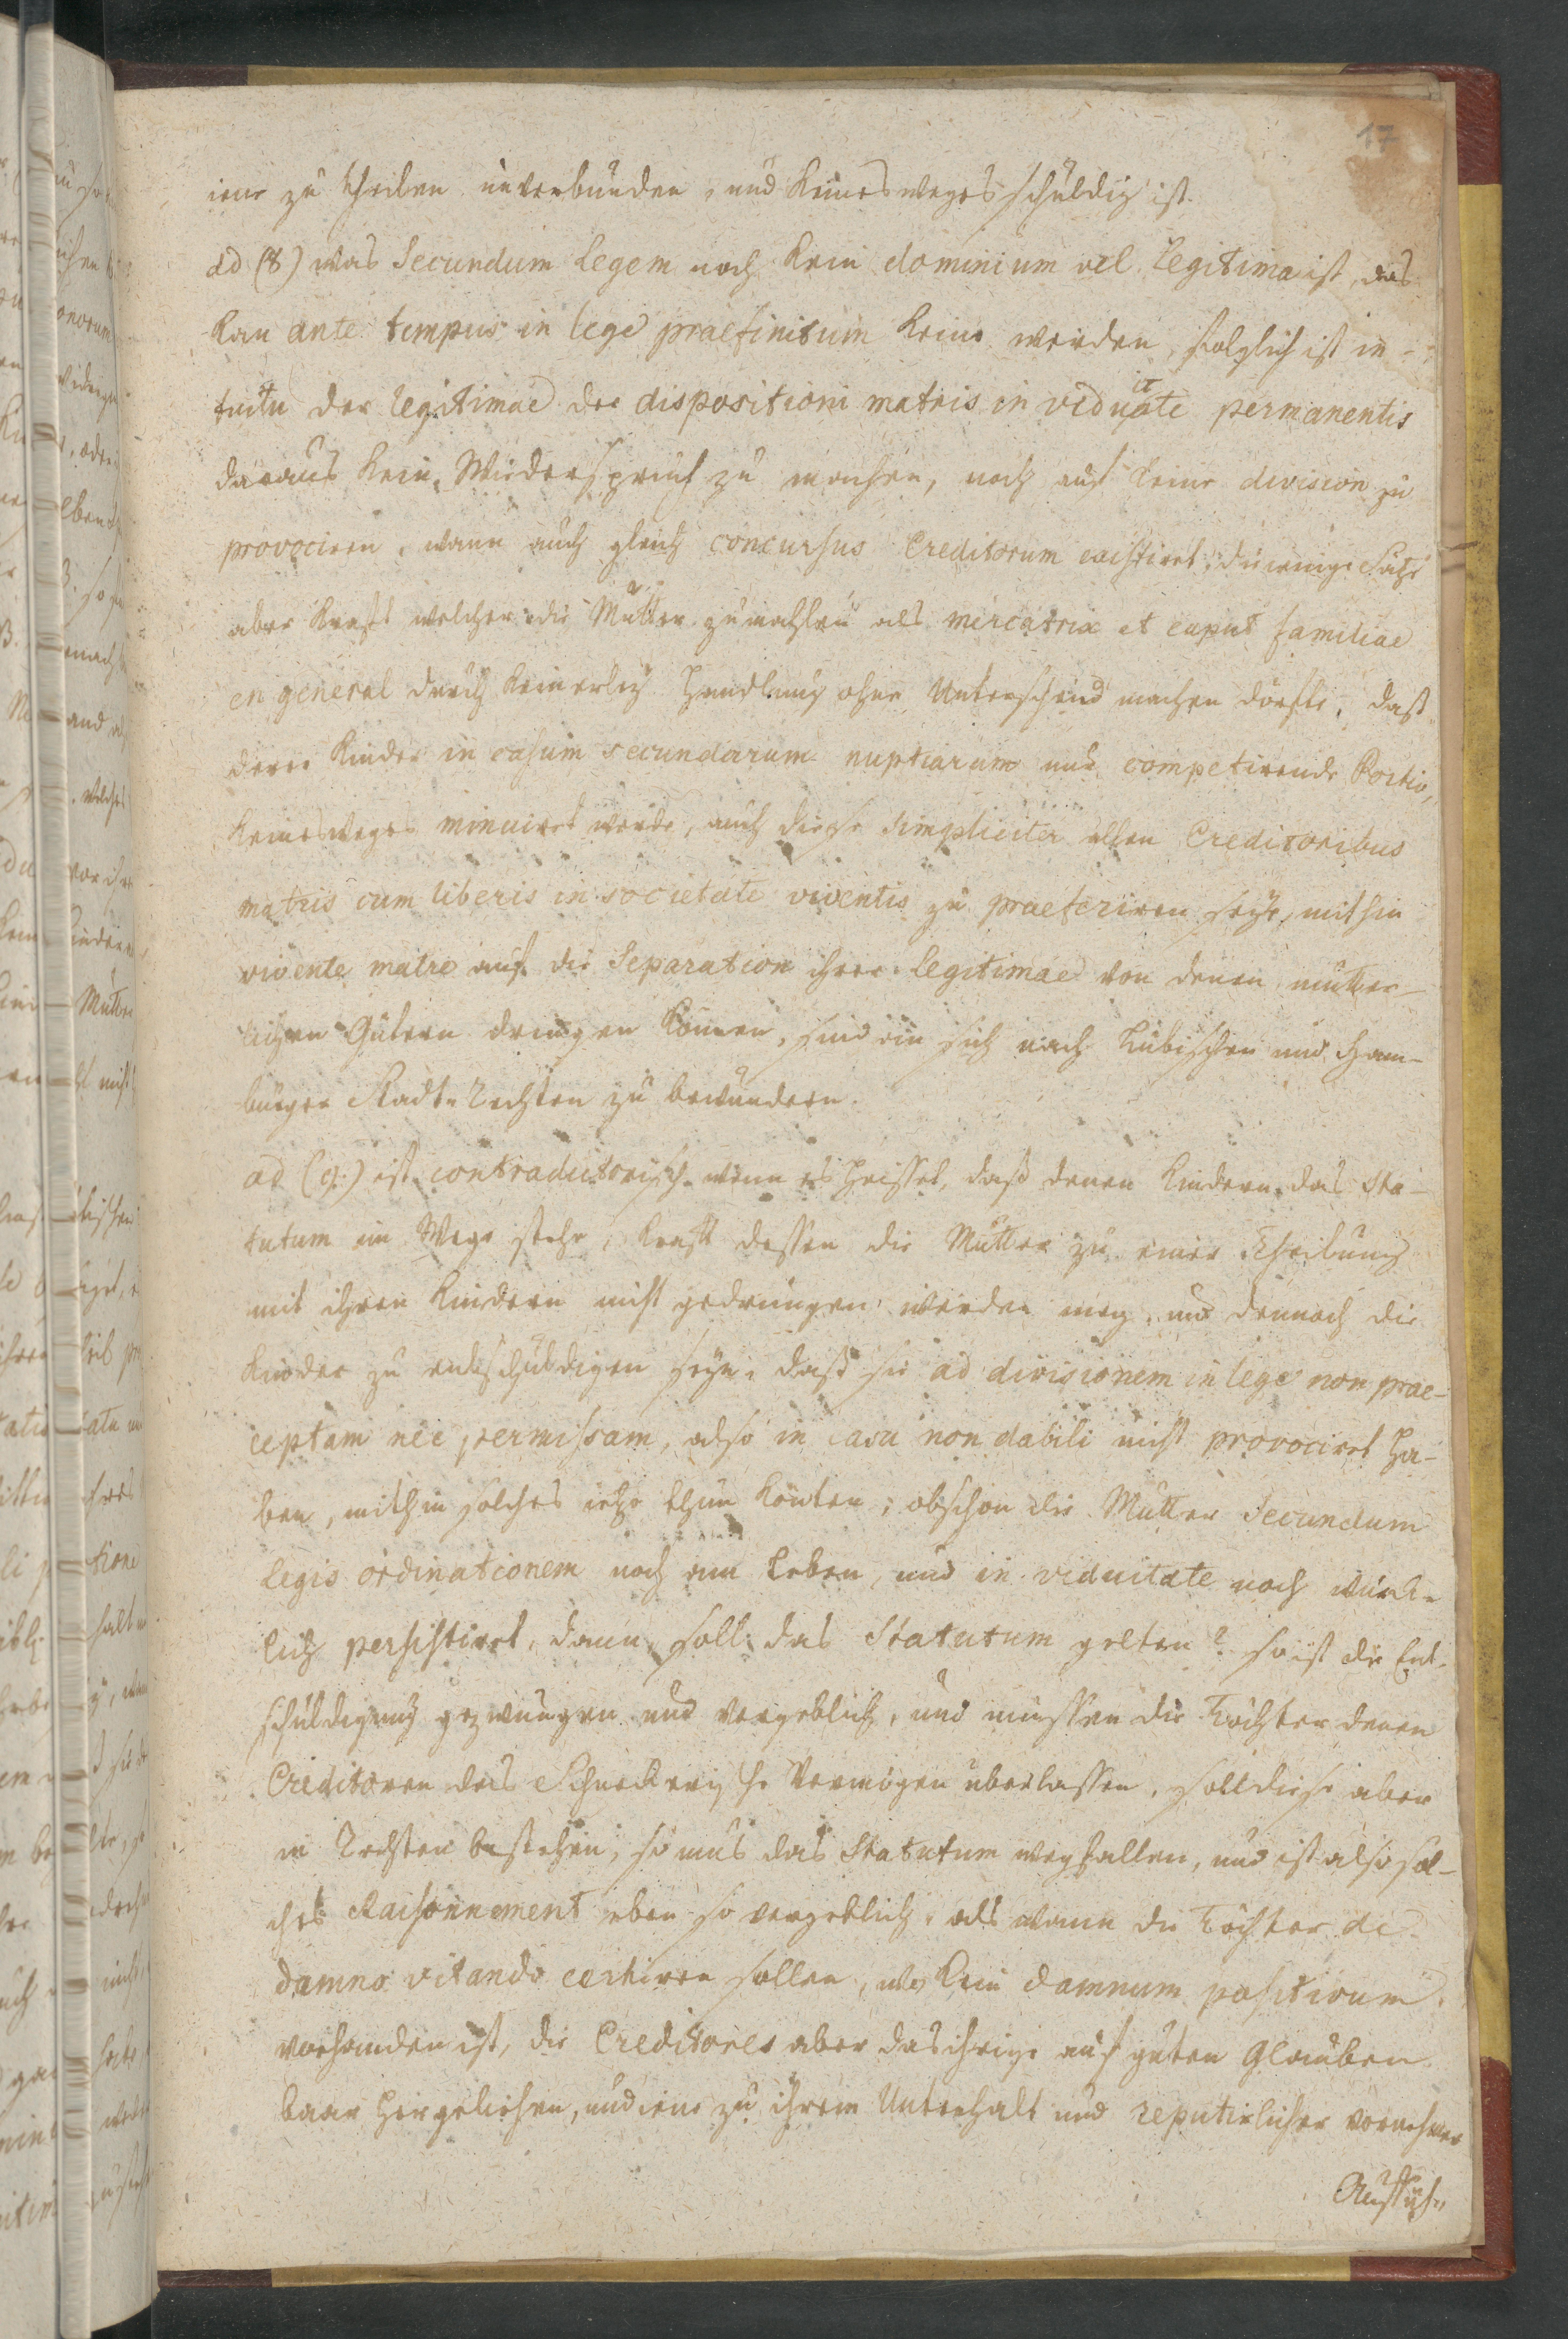 17
iene zu theilen unverbunden, und keinesweges schuldig ist.
ad (8) was Secundum Legem noch kein dominium vel Legitima ist, das
kan ante tempus in lege praefinitum keine werden, folglich ist in-
tuitu der legitimae der dispositioni matris in viduitate permanentis
daraus kein Wiederspruch zu machen, noch auf keine division zu
provociren, wann auch gleich concursus Creditorum existiret; diejenige Sätze
aber kraft welcher die Mutter zumahlen als mercatrix et caput familiae
en general durch keinerley Handlung ohne Unterscheid machen dörfte, daß
derer Kinder in casum secundarum nuptiarum nur competirende Portio,
keinesweges minuiret werde, auch diese simpliciter allen Creditoribus
matris cum liberis in societate viventis zu praeferiren seye, mithin
vivente matre auf die Separation ihrer legitimae von denen mütter-
lichen Gütern dringen können, sind an sich nach Lübischen und Ham-
burger Stadt-Rechten zu bewundern.
ad (9.) ist contradictorisch wenn es heisset, daß denen Kindern das Sta-
tutum im Wege stehe, kraft dessen die Mutter zu einer Theilung
mit ihren Kindern nicht gedrungen werden mag, und dennoch die
Kinder zu entschuldigen seyn, daß sie ad divisionem in lege non prae-
ceptam nec permissam, also in casu non dabili nicht provociret ha-
ben, mithin solches jetzo thun könten; obschon die Mutter Secundum
Legis ordinationem noch am Leben, und in viduitate noch würk-
lich persistiret, dann soll das Statutum gelten? so ist die Ent-
schuldigung gezwungen und vergeblich, und müssen die Töchter denen
Creditoren das Schneckersche Vermögen überlassen, soll diese aber
in Rechten bestehen, so mus das Statutum wegfallen, und ist also sol-
ches Raisonnement eben so vergeblich, als wann die Töchter de
damno vitando certiren sollen, wo kein damnum positivum
vorhanden ist, die Creditores aber das ihrige auf guten Glauben
baar hergeliehen, und iene zu ihrem Unterhalt und reputirlicher vornehmer
Auffüh-